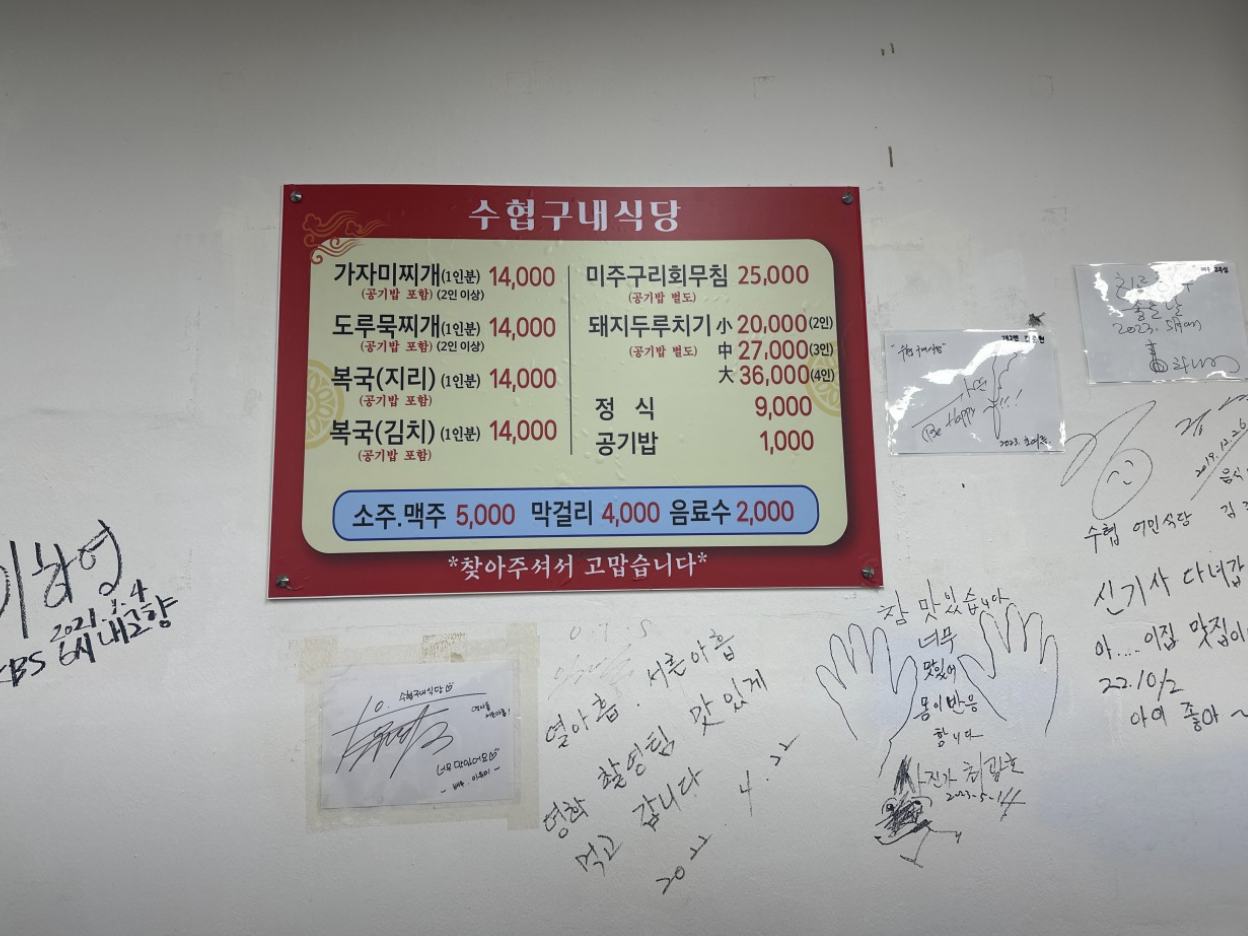 수협구내식당
가자미찌개(1인분) 14,000
(공기밥 포함) (2인 이상)
도루묵찌개(1인분) 14,000
(공기밥 포함) (2인 이상)
복국(지리) (1인분) 14,000
(공기밥 포함)
복국(김치) (1인분) 14,000
(공기밥 포함)
미주구리회무침 25,000
(공기밥 별도)
돼지두루치기 小 20,000(2인)
(공기밥 별도) 中 27,000(3인)
大 36,000(4인)
정 식 9,000
공기밥 1,000
소주.맥주 5,000 막걸리 4,000 음료수 2,000
*찾아주셔서 고맙습니다*
2021.
KBS 6시 내고향
To. 수협구내식당
열아홉. 서른아홉
영화 촬영팀 맛있게
먹고 갑니다
2022. 4. 22
참 맛있습니다
너무
맛있어
몸이 반응
합니다
사진가 최광호
2023-5-14
"수협구내식당"
Be Happy
2023.
2023.
2019.12.26
수협 어민식당
신기사 다녀감
아.... 이집 맛집이
22.10/2
아이 좋아~